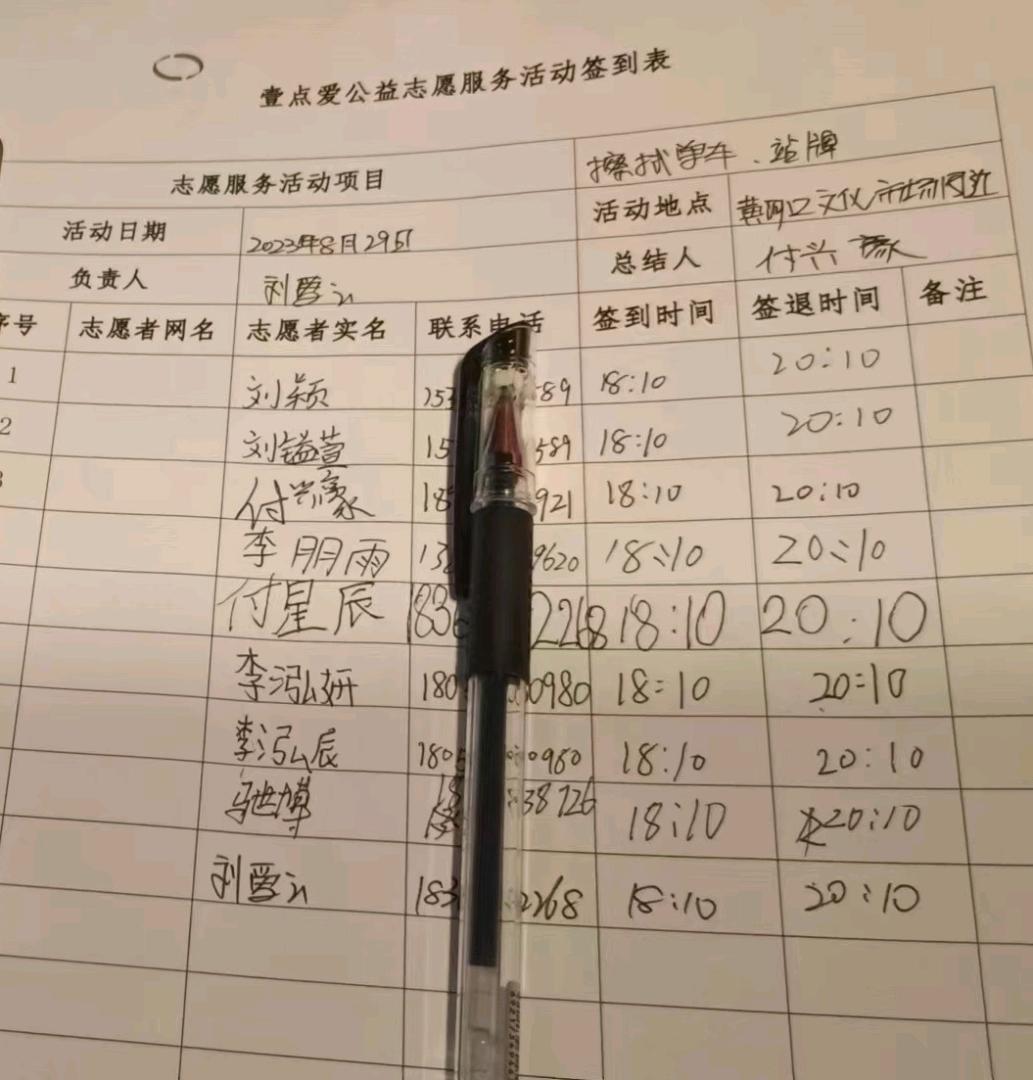 壹点爱公益志愿服务活动签到表
志愿服务活动项目 擦拭单车、站牌
活动日期 2023年8月29日 活动地点 黄河口文化市场附近
负责人 刘爱云 总结人 付兴豪
序号 志愿者网名 志愿者实名 联系电话 签到时间 签退时间 备注
1 刘颖 153 589 18:10 20:10
2 刘镒萱 15 589 18:10 20:10
3 付兴豪 18 921 18:10 20:10
李朋雨 13 9620 18:10 20:10
付星辰 183 2268 18:10 20:10
李泓妍 180 0980 18:10 20:10
李泓辰 1805 0980 18:10 20:10
驰博 18 38726 18:10 20:10
刘爱云 183 2268 18:10 20:10